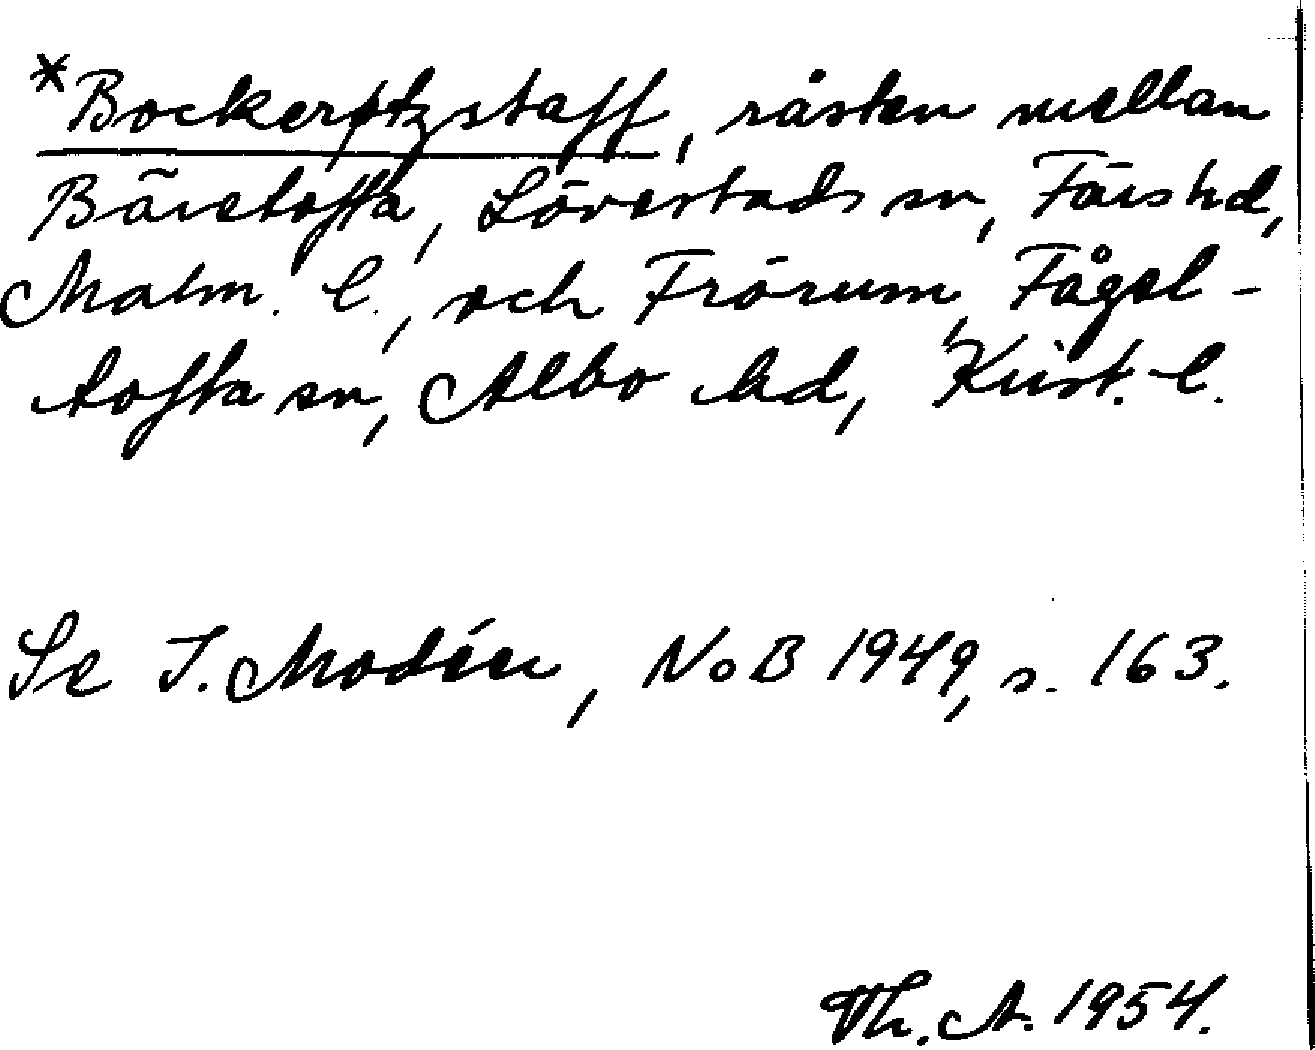 *Bockerøtzstaff, råsten mellan
Bäretofta, Lövestads sn, Färs hd,
Malm. l., och Frörum, Fågel-
tofta sn, Albo hd, Krist. l.
Se I. Modéer, NoB 1949, s. 163.
Th. A. 1954.